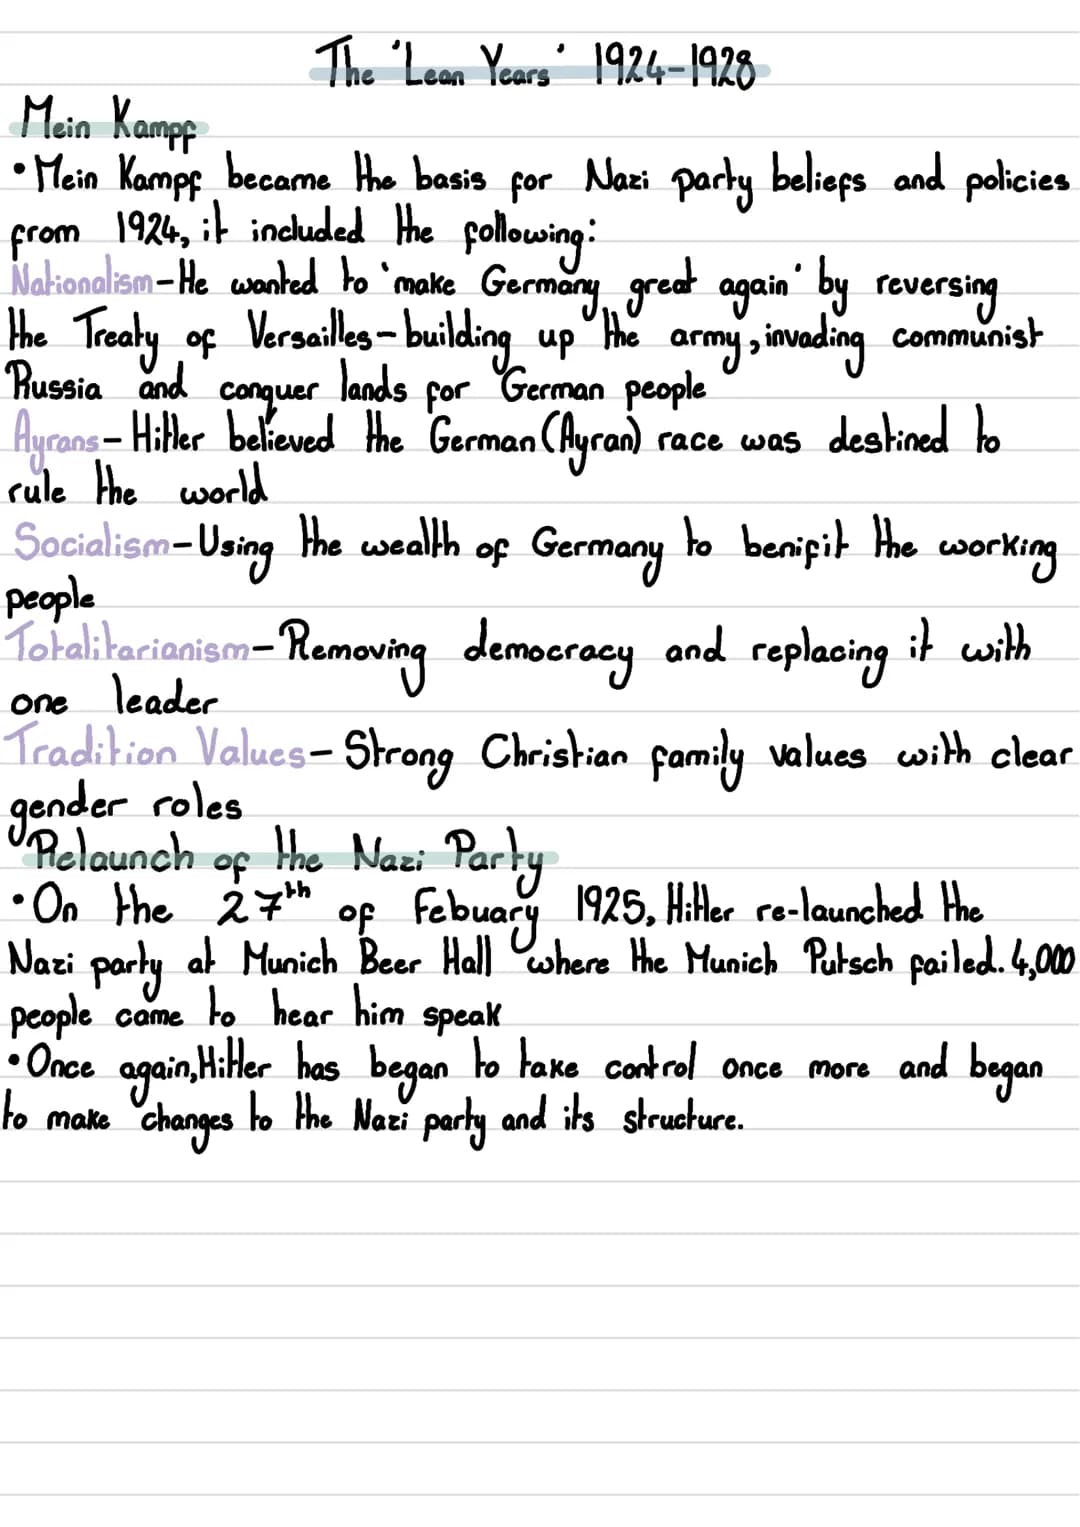 The 'Lean Years' 1924-1928
Mein Kampf
• Mein Kampf became the basis for Nazi party beliefs and policies
from 1924, it included the following:
Nationalism-He wanted to 'make Germany great again' by reversing
the Treaty of Versailles-building up the army, invading communist
Russia and conquer lands for German people
Ayrans-Hitler believed the German (Ayran) race was destined to
rule the world
Socialism-Using the wealth of Germany to benifit the working
people
Totalitarianism-Removing democracy and replacing it with
one leader
Tradition Values-Strong Christian family values with clear
gender roles
Relaunch of the Nazi Party
• On the 27th of Febuary 1925, Hitler re-launched the
Nazi party at Munich Beer Hall where the Munich Putsch failed. 4,000
people came to hear him speak
• Once again, Hitler has began to take control once more and began
to make changes to the Nazi party and its structure.